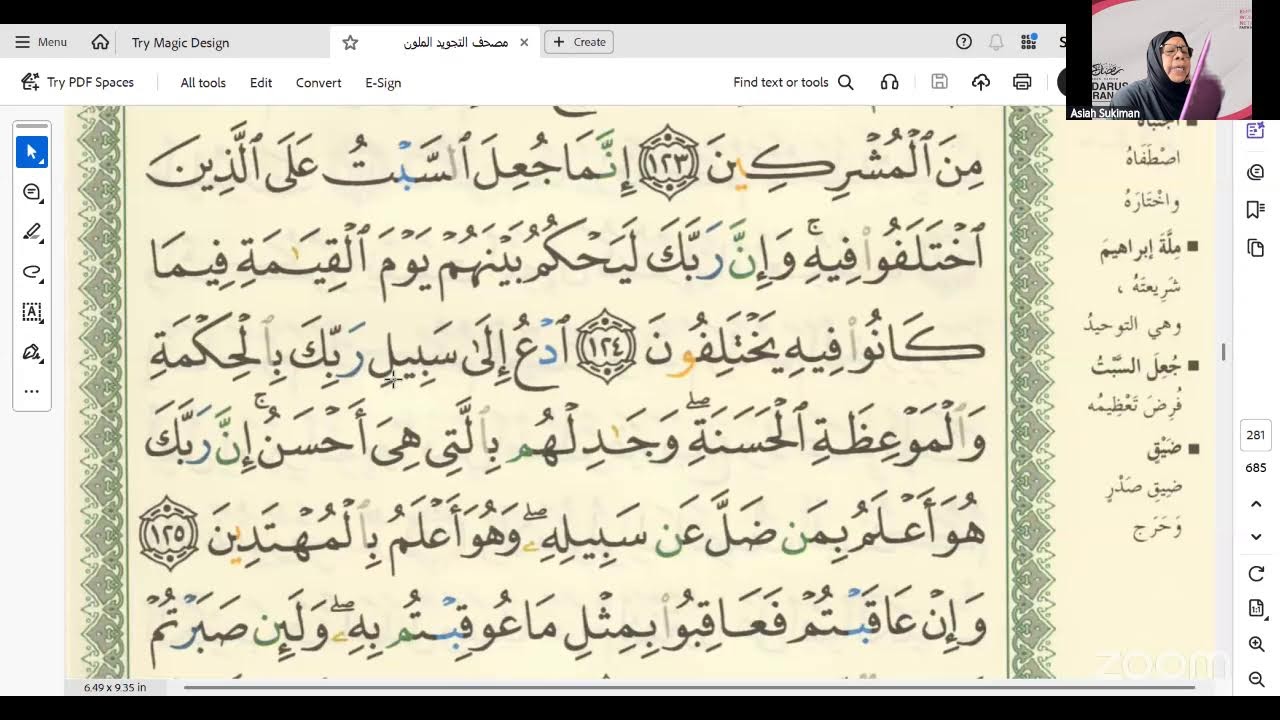 Menu
Try Magic Design
مصحف التجويد الملون
Create
Try PDF Spaces
All tools
Edit
Convert
E-Sign
Find text or tools
Asiah Sukiman
مِنَ ٱلْمُشْرِكِينَ ١٢٣ إِنَّمَا جُعِلَ ٱلسَّبْتُ عَلَى ٱلَّذِينَ
ٱخْتَلَفُوا۟ فِيهِ ۚ وَإِنَّ رَبَّكَ لَيَحْكُمُ بَيْنَهُمْ يَوْمَ ٱلْقِيَٰمَةِ فِيمَا
كَانُوا۟ فِيهِ يَخْتَلِفُونَ ١٢٤ ٱدْعُ إِلَىٰ سَبِيلِ رَبِّكَ بِٱلْحِكْمَةِ
وَٱلْمَوْعِظَةِ ٱلْحَسَنَةِ ۖ وَجَٰدِلْهُم بِٱلَّتِى هِىَ أَحْسَنُ ۚ إِنَّ رَبَّكَ
هُوَ أَعْلَمُ بِمَن ضَلَّ عَن سَبِيلِهِۦ ۖ وَهُوَ أَعْلَمُ بِٱلْمُهْتَدِينَ ١٢٥
وَإِنْ عَاقَبْتُمْ فَعَاقِبُوا۟ بِمِثْلِ مَا عُوقِبْتُم بِهِۦ ۖ وَلَئِن صَبَرْتُمْ
اصْطَفَاهُ
وَاخْتَارَهُ
مِلَّةَ إبراهيمَ
شَرِيعتَهُ ،
وهي التوحيدُ
جُعِلَ السَّبْتُ
فُرِضَ تَعْظِيمُه
ضَيْقٍ
ضِيقِ صَدْرٍ
وَحَرَج
281
685
6.49 x 9.35 in
zoom